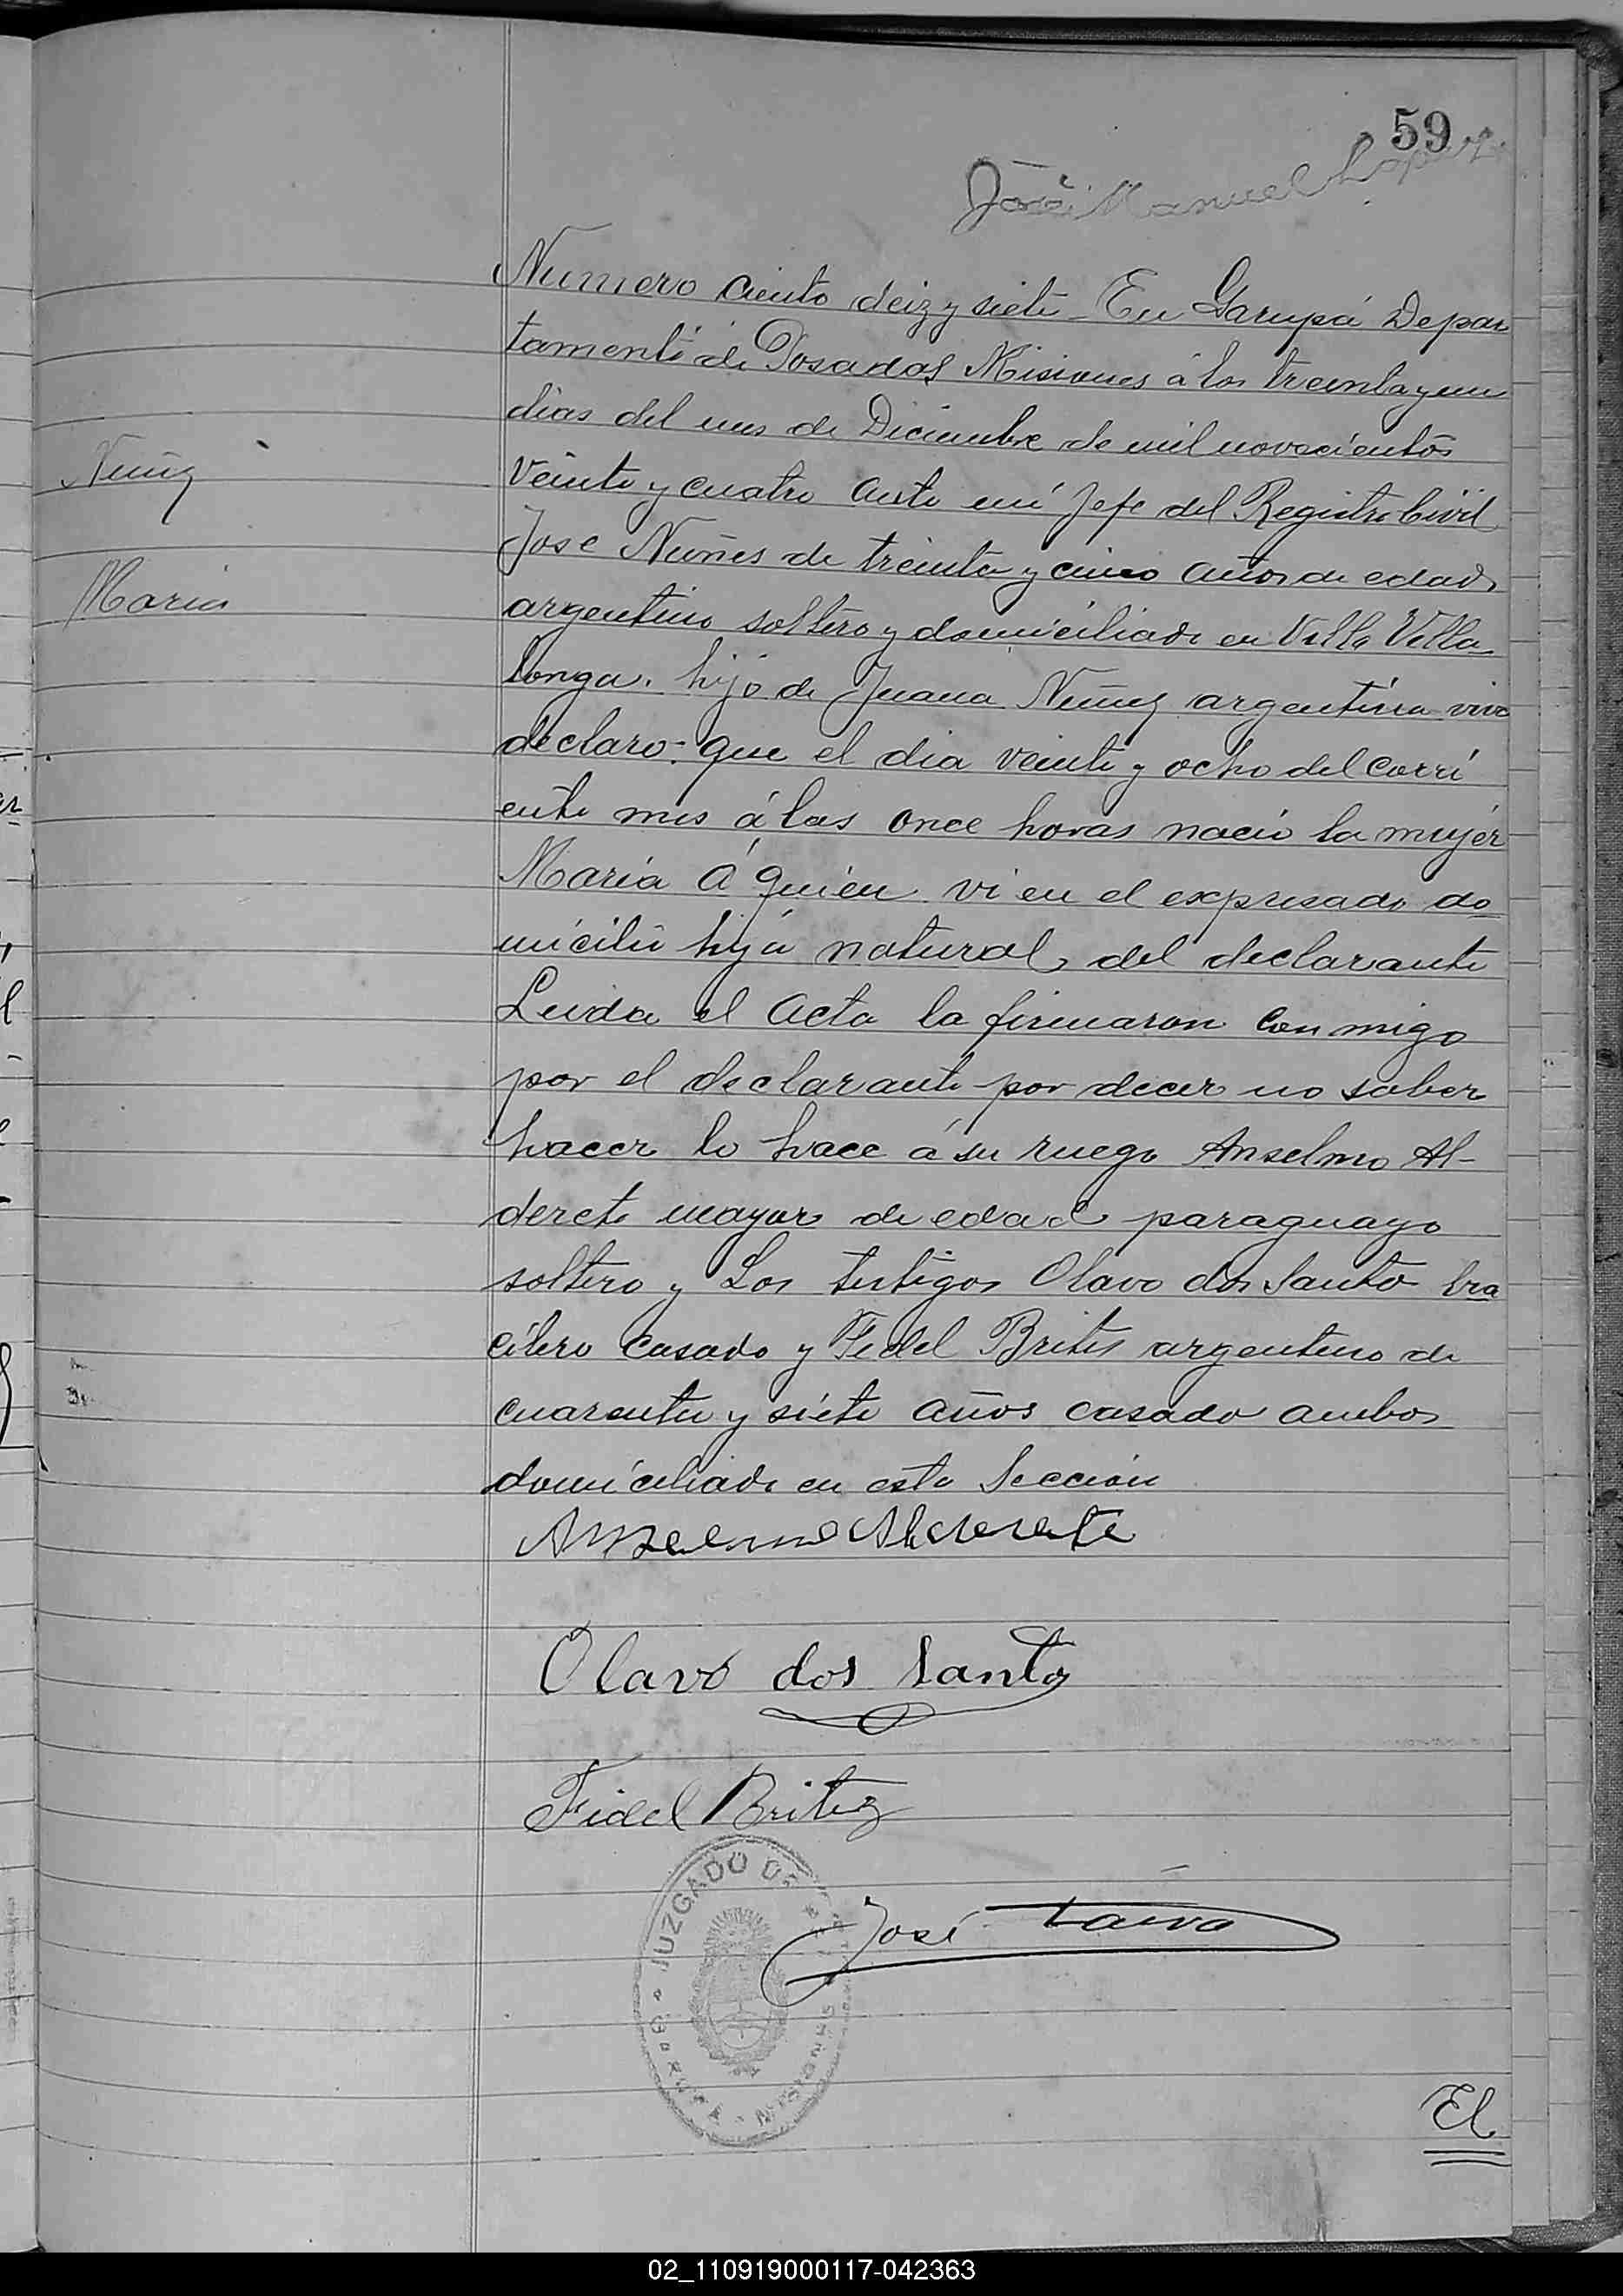 59
José Manuel Lopez
Numero ciento deiz y siete - En Garupá Depar
tamento de Posadas Misiones á los treinta y un
dias del mes de Diciembre de mil novecientos
Veinte y cuatro ante mí Jefe del Registro Civil
Jose Nuñes de treinta y cinco años de edad
argentino soltero y domiciliado en Villa Villa
longa. hijo de Juana Nuñez argentina viva
declaro: que el dia veinte y ocho del corri
ente mes á las once horas nacio la mujer
Nuñez
Maria
Maria á quien vi en el expresado do
micilio hija natural del declarante
Leida el acta la firmaron conmigo
por el declarante por decir no saber
hacer lo hace á su ruego Anselmo Al-
derete mayor de edad paraguayo
soltero y Los testigos Olavo dos Santo bra
cilero casado y Fidel Brites argentino de
cuarenta y siete años casado ambos
domiciliado en esta Sección
Anselmo Alderete
Olavo dos Santos
Fidel Britez
José
JUZGADO DE
GARUPA
MISIONES
El
02_110919000117-042363